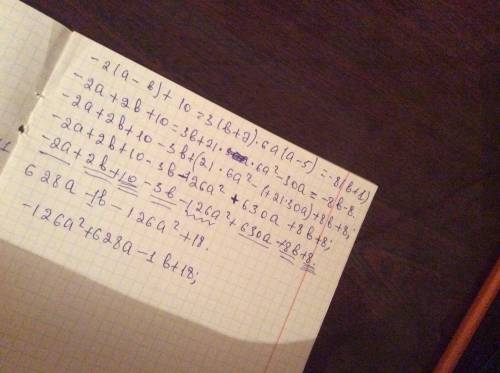 -2(a-b)+10=3(b+7)·6a(a-5)=-8(b+1)
-2a+2b+10=3b+21·6a²-30a=-8b-8.
-2a+2b+10-3b+(21·6a²-(+21·30a)+8b+8;
-2a+2b+10-3b-126a²+630a+8b+8;
-2a+2b+10-3b-126a²+630a+8b+8.
628a-1b-126a²+18.
-126a²+628a-1b+18;